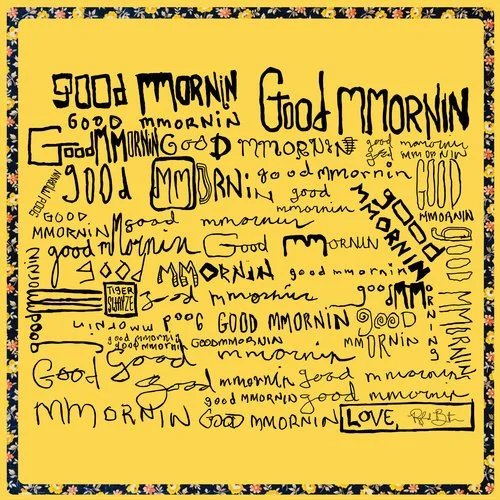 good MMORNiN Good MMORNIN
GOOD MMORNIN
Good MMORNIN GooD MMORNIN good mmornin
good MMORNIN
good MMORNiN good mmornin GOOD
good mmornin MMORNIN
GOOD MMORNIN
GOOD MMORNIN good mmornin good MMORNIN
good mMornin Good MMORNIN GOOD MMORNIN
good MMORNIN good mmornin good MMORNING
good MMORNIN TIGER SHAYZE good mmornin
good MMORNIN GOOD MMORNIN gOOD MMORNIN
good mmornin
good mmornin GOODMMORNIN
Good good mmornin
good mmornin good mmornin
good MMORNIN good mmornin
MMORNIN GOOD MMORNIN LOVE,